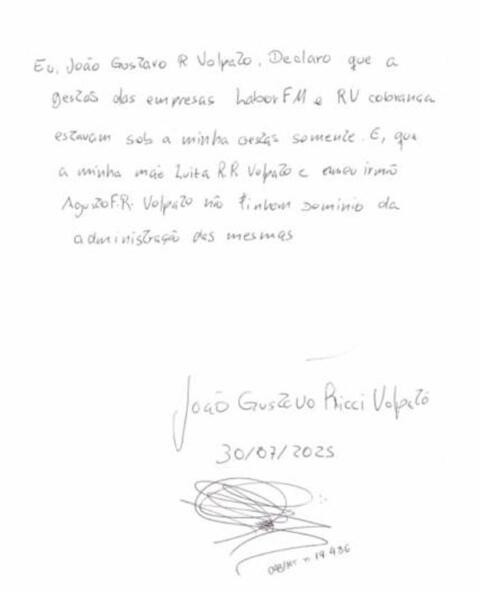 Eu, João Gustavo R Volpato, Declaro que a
gestão das empresas Labor FM e RV cobrança
estavam sob a minha gestão somente. E, que
a minha mãe Luiza R R Volpato e meu irmão
Augusto F. R. Volpato não tinham Dominio da
administração das mesmas
João Gustavo Ricci Volpato
30/07/2025
OAB/MT n 19 436